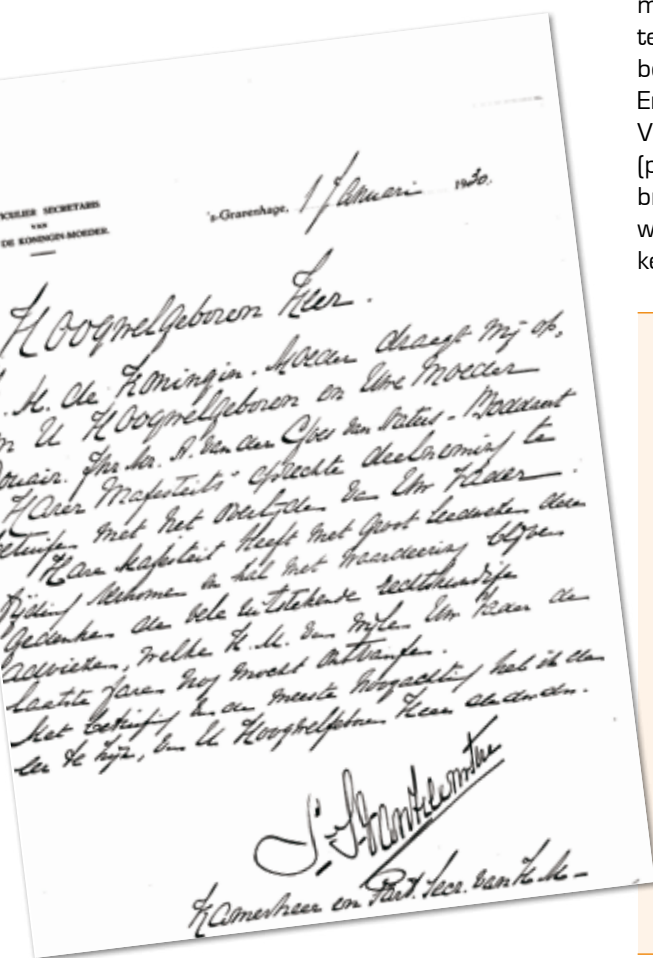 ICULIER SECRETARIS
VAN
DE KONINGIN-MOEDER.
's-Gravenhage, 1 Januari 1930.
Hoogwelgeboren Heer.
. M. de Koningin-Moeder draagt mij op,
n U Hoogwelgeboren en Uwe Moeder
ouair. Jhr. Mr. A. van der Goes van Naters - Boddaert
Harer Majesteits oprechte deelneming te
etuigen met het overlijden van Uw Vader.
Hare Majesteit heeft met groot leedwezen deze
tijding vernomen en zal met waardeering blijven
gedenken de vele uitstekende rechtskundige
adviezen, welke H. M. van wijlen Uw Vader de
laatste jaren nog mocht ontvangen.
Met betuiging van de meeste hoogachting heb ik de
eer te zijn, van U Hoogwelgeboren Heer de
Kamerheer en Part. Secr. van H. M.
m
te
be
En
V
(p
br
w
ke